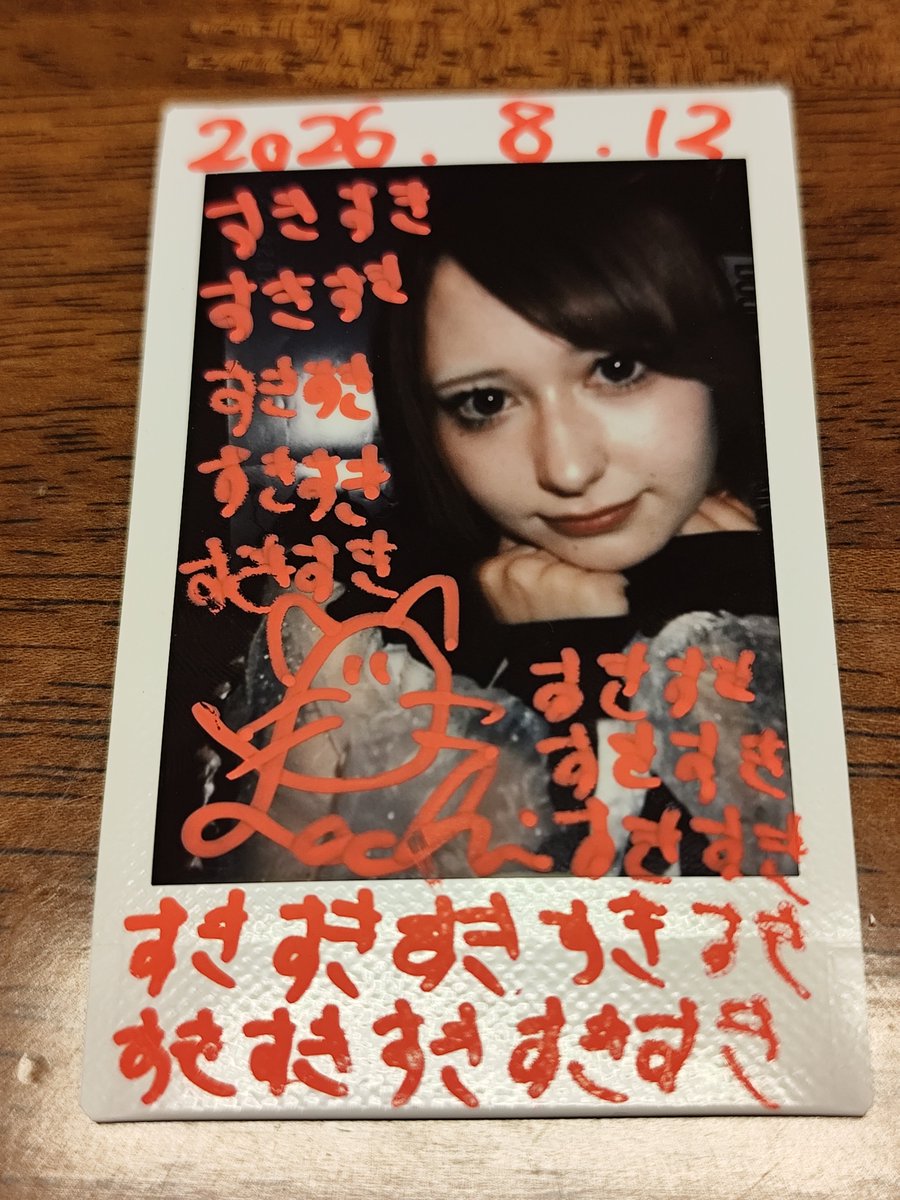 2026.8.12
すきすき
すきすき
すきすき
すきすき
すきすき
すきすき
すきすき
すきすき
すきすきすきすきすき
すきすきすきすきすき